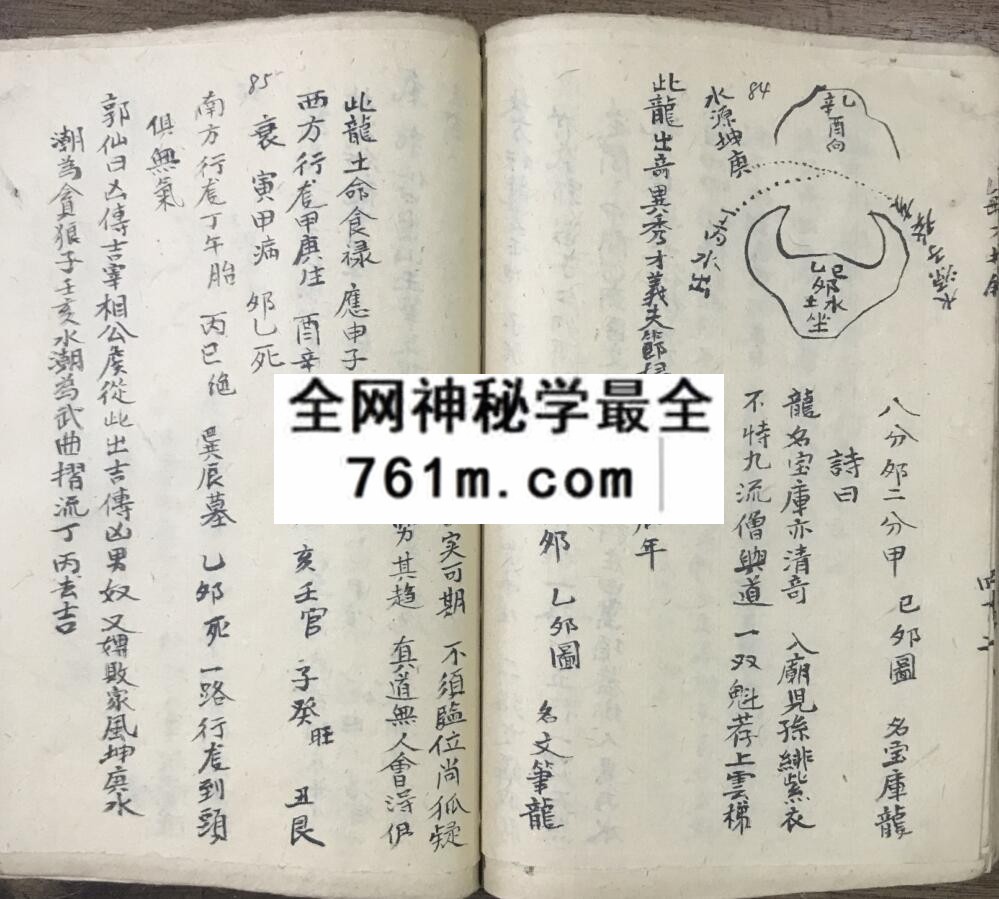 84
乙
辛酉向
水源坤庚
丙水出
己卯水
乙土坐
八分卯二分甲 己卯圖 名宝庫龍
詩曰
龍名宝庫亦清奇 入廟兒孫緋紫衣
不特九流僧與道 一双魁荐上雲梯
此龍出奇異秀才義夫節
年
卯 乙卯圖 名文筆龍
实可期 不須臨位尚狐疑
其趋 真道無人會淂伊
此龍土命食禄 應申子
西方行龙甲庚生 酉辛
亥壬官 子癸旺 丑艮
85
衰 寅甲病 卯乙死
南方行龙丁午胎 丙巳绝 巽辰墓 乙卯死 一路行龙到頭
俱無氣
郭仙曰凶傳吉宰相公侯從此出吉傳凶男奴女婢敗家風坤庚水
潮為貪狼子壬亥水潮為武曲摺流丁丙去吉
全网神秘学最全
761m.com